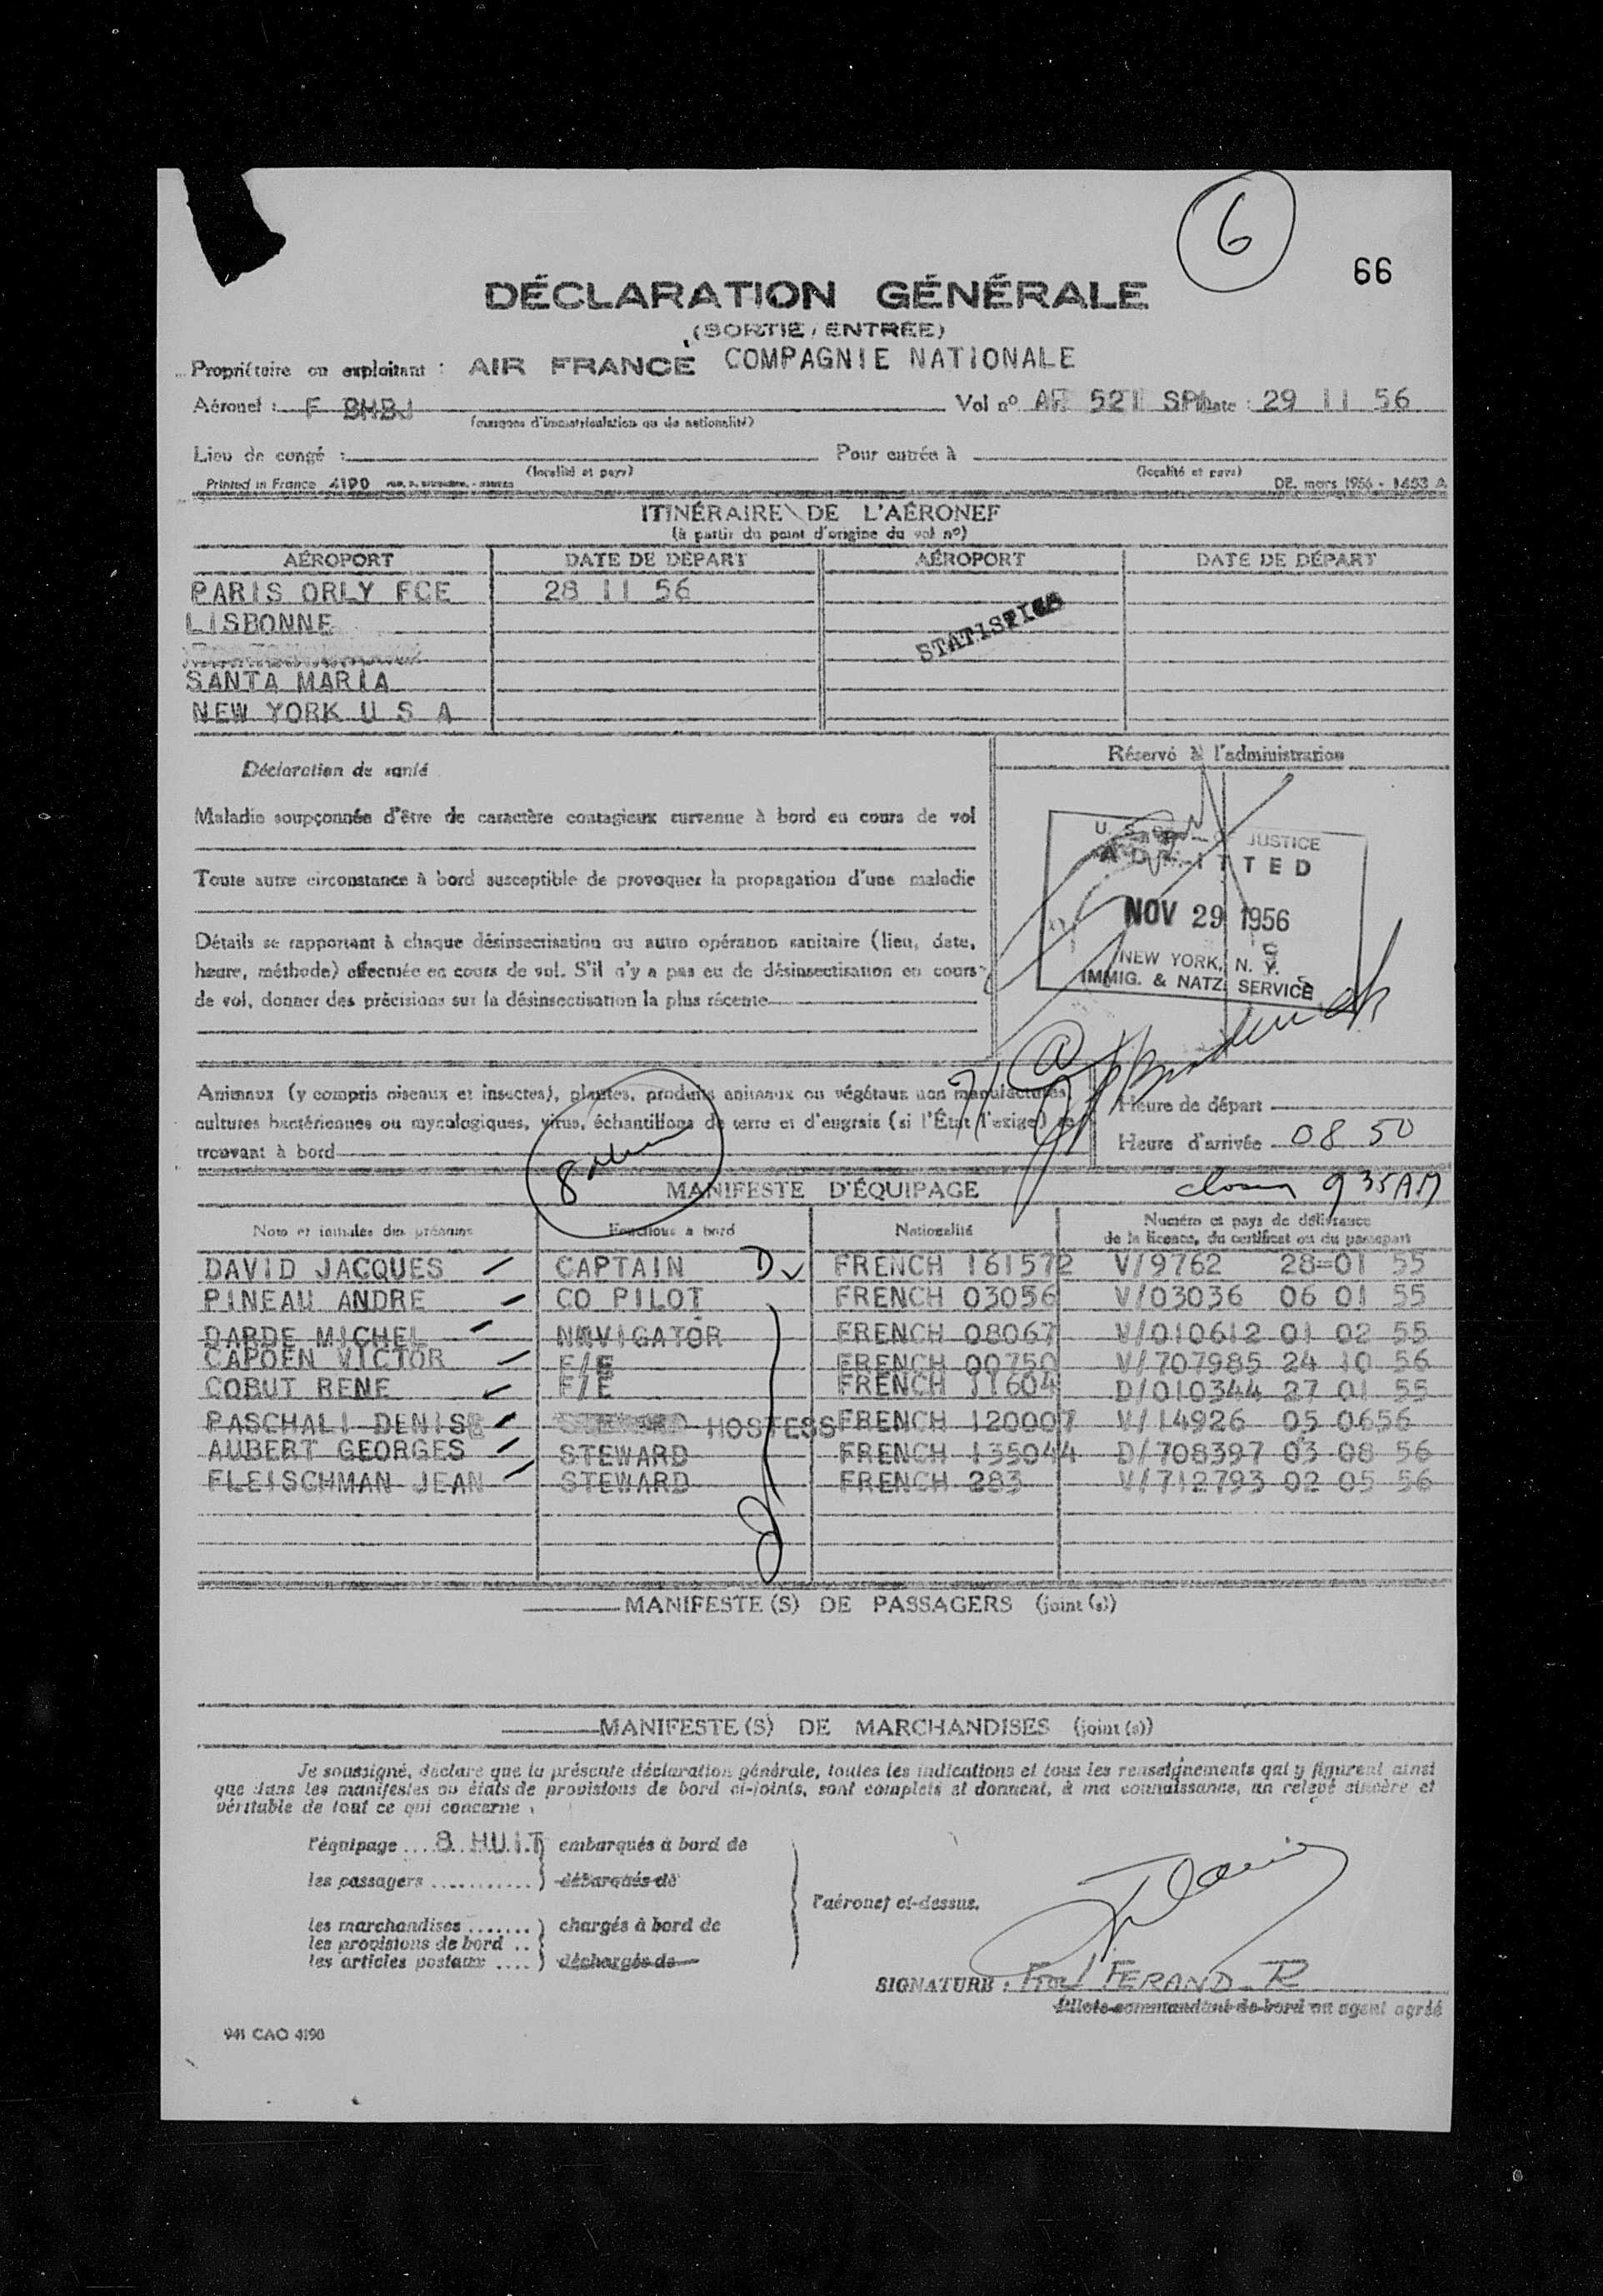 6
66
DÉCLARATION GÉNÉRALE
(SORTIE / ENTRÉE)
Propriétaire ou exploitant : AIR FRANCE COMPAGNIE NATIONALE
Aéronef : F BHBJ Vol nº AF 521 SPL Date : 29 11 56
(marques d'immatriculation ou de nationalité)
Lieu de congé : Pour entrée à
(localité et pays) (localité et pays)
Printed in France 4190 DE. mars 1956 - 1453 A
ITINÉRAIRE DE L'AÉRONEF
(à partir du point d'origine du vol nº)
AÉROPORT DATE DE DÉPART AÉROPORT DATE DE DÉPART
PARIS ORLY FCE 28 11 56
LISBONNE
STATISTICS
SANTA MARIA
NEW YORK U S A
Réservé à l'administration
Déclaration de santé
Maladie soupçonnée d'être de caractère contagieux survenue à bord en cours de vol
Toute autre circonstance à bord susceptible de provoquer la propagation d'une maladie
Détails se rapportant à chaque désinsectisation ou autre opération sanitaire (lieu, date,
heure, méthode) effectuée en cours de vol. S'il n'y a pas eu de désinsectisation en cours
de vol, donner des précisions sur la désinsectisation la plus récente
U. S. JUSTICE
ADMITTED
NOV 29 1956
NEW YORK, N. Y.
IMMIG. & NATZ. SERVICE
Animaux (y compris oiseaux et insectes), plantes, produits animaux ou végétaux non manufacturés,
cultures bactériennes ou mycologiques, virus, échantillons de terre et d'engrais (si l'État l'exige) se
trouvant à bord
Heure de départ
Heure d'arrivée 08 50
8
9 35 AM
MANIFESTE D'ÉQUIPAGE
Nom et initiales des prénoms Fonctions à bord Nationalité Numéro et pays de délivrance
de la licence, du certificat ou du passeport
DAVID JACQUES CAPTAIN D FRENCH 161572 V/9762 28=01 55
PINEAU ANDRE CO PILOT FRENCH 03056 V/03036 06 01 55
DARDE MICHEL NAVIGATOR FRENCH 08067 V/010612 01 02 55
CAPOEN VICTOR F/E FRENCH 00750 V/707985 24 10 56
COBUT RENE F/E FRENCH 11604 D/010344 27 01 55
PASCHALI DENISE HOSTESS FRENCH 120007 V/14926 05 0656
AUBERT GEORGES STEWARD FRENCH 135044 D/708397 03 08 56
FLEISCHMAN JEAN STEWARD FRENCH 283 V/712793 02 05 56
MANIFESTE(S) DE PASSAGERS (joint(s))
MANIFESTE(S) DE MARCHANDISES (joint(s))
Je soussigné, déclare que la présente déclaration générale, toutes les indications et tous les renseignements qui y figurent ainsi
que dans les manifestes ou états de provisions de bord ci-joints, sont complets et donnent, à ma connaissance, un relevé sincère et
véritable de tout ce qui concerne :
l'équipage .... 8 HUIT ) embarqués à bord de
les passagers ............ ) débarqués de
l'aéronef ci-dessus.
les marchandises ....... ) chargés à bord de
les provisions de bord ..
les articles postaux .... ) déchargés de
SIGNATURE : FERAND. R
Pilote commandant de bord ou agent agréé
941 CAO 4190